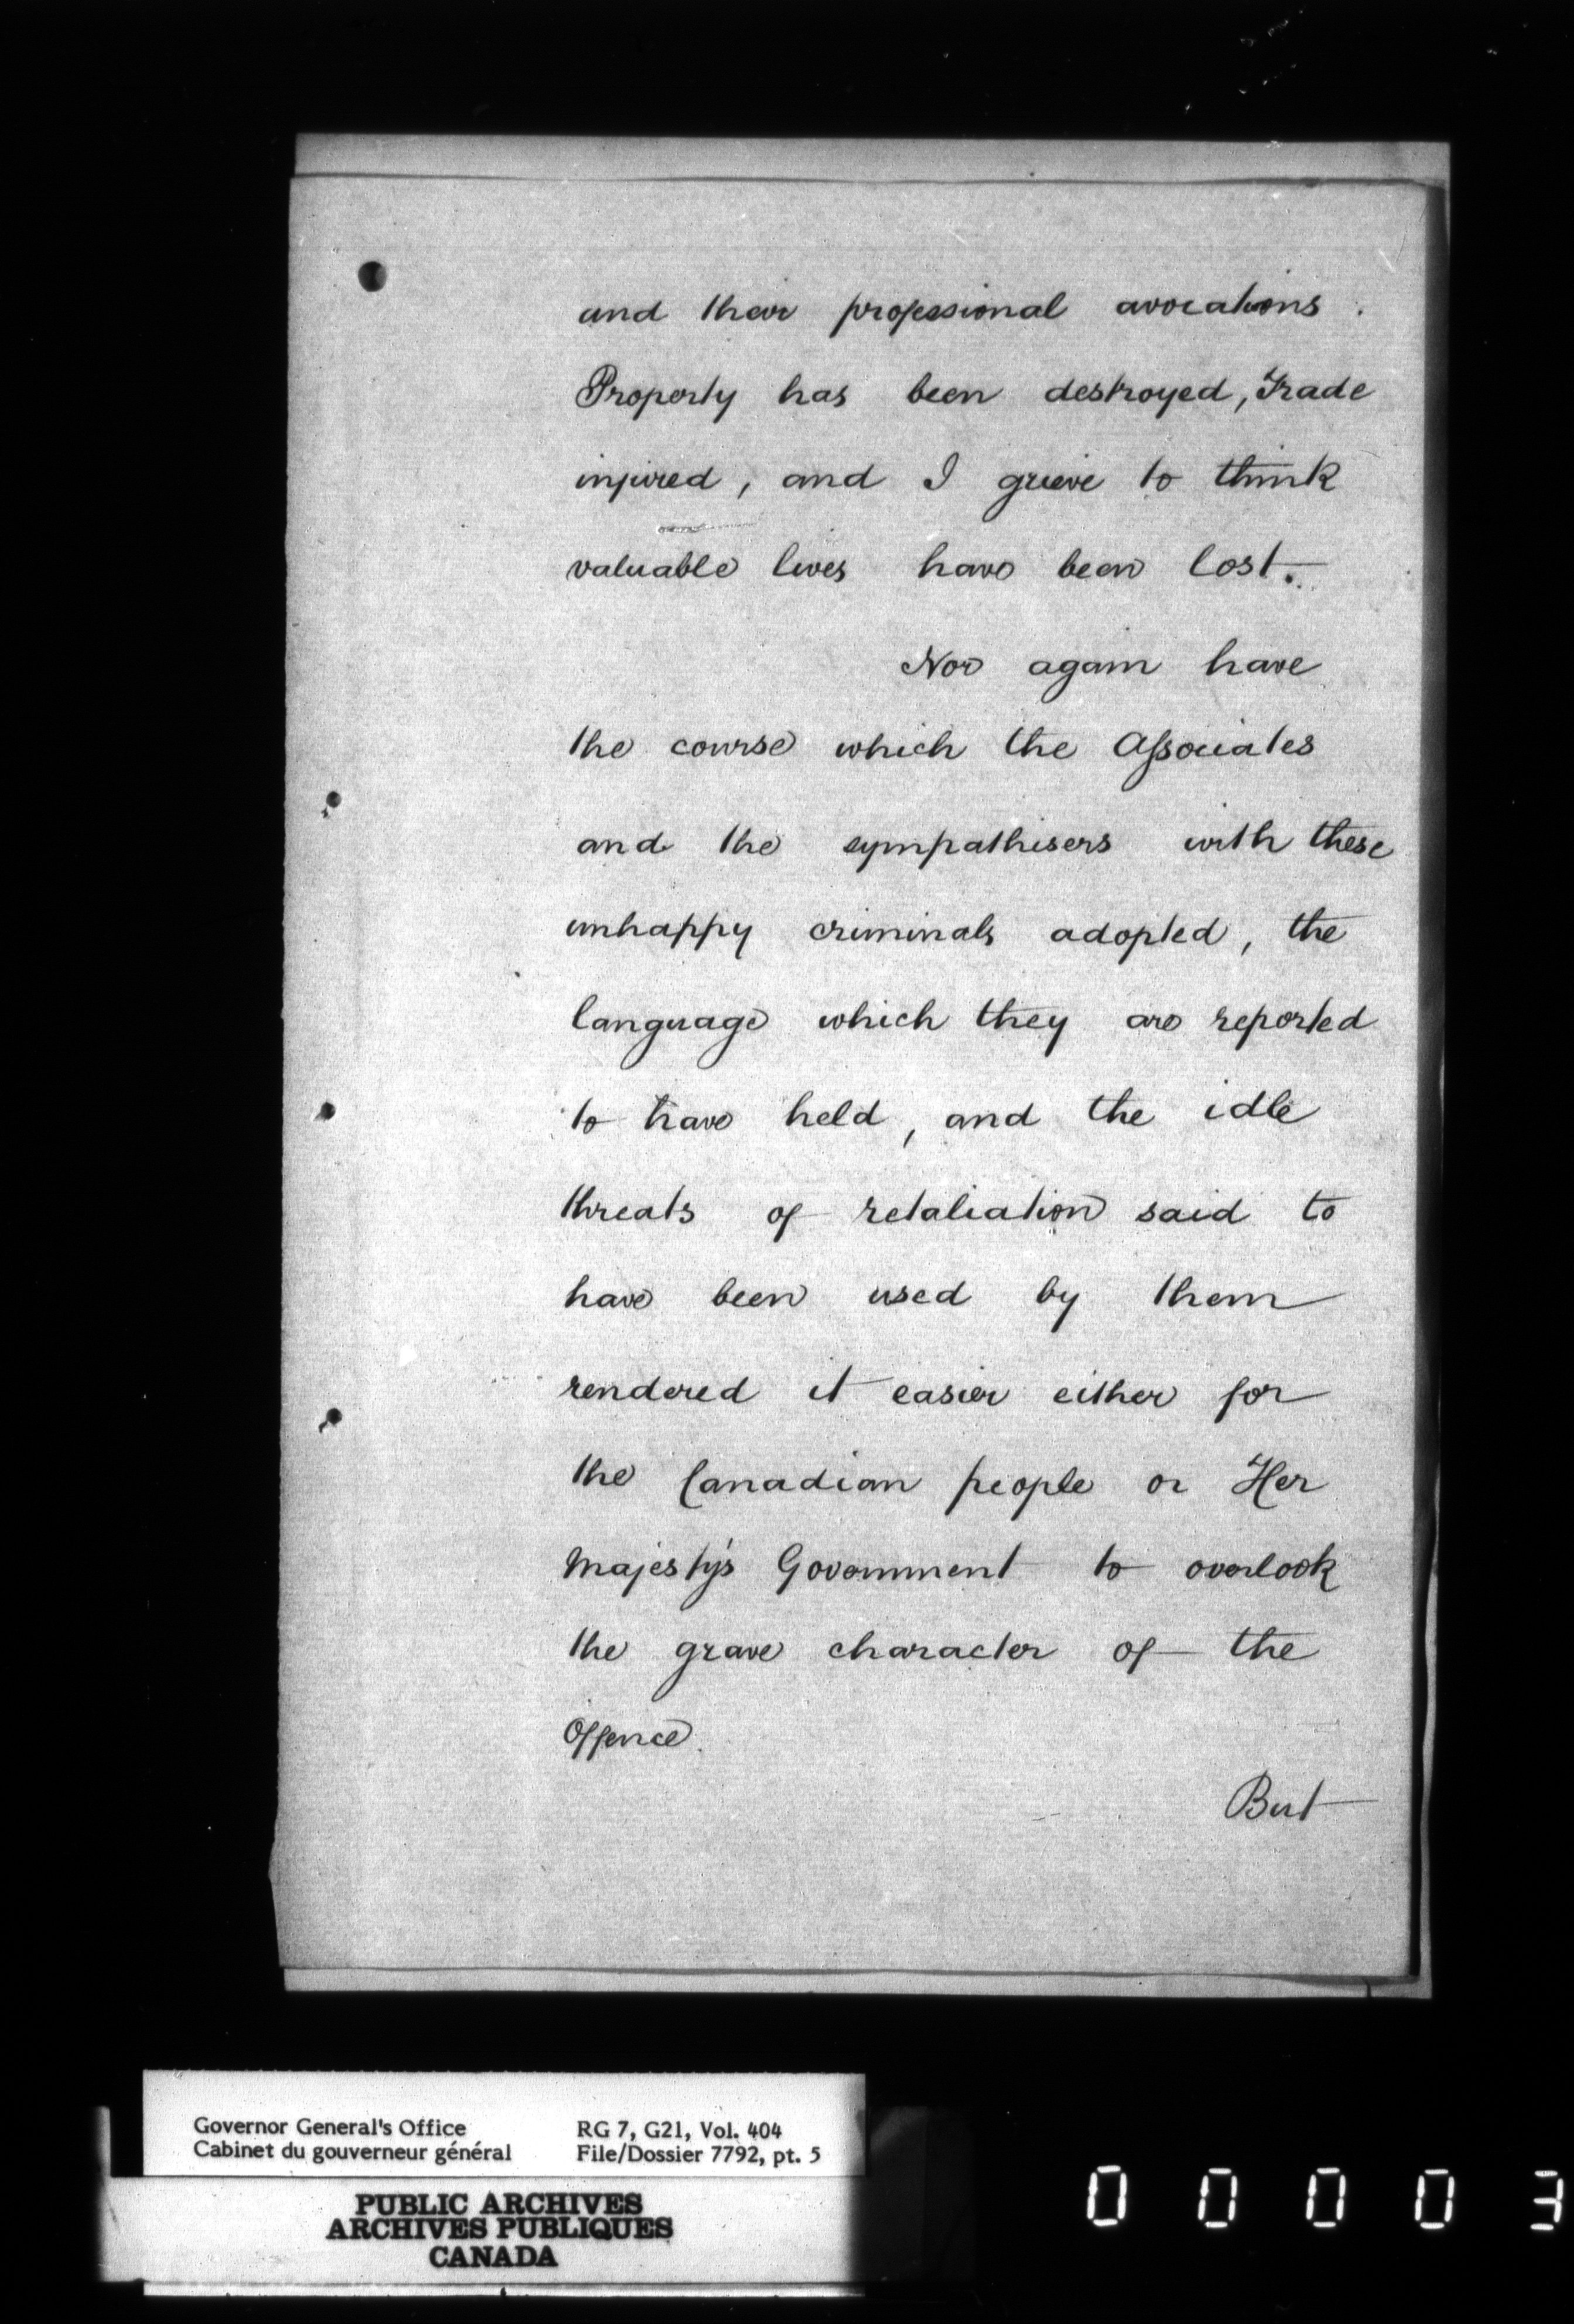 and their professional avocations.
Property has been destroyed, Trade
injured, and I grieve to think
valuable lives have been lost.
Nor again have
the course which the Associates
and the sympathisers with these
unhappy criminals adopted, the
language which they are reported
to have held, and the idle
threats of retaliation said to
have been used by them
rendered it easier either for
the Canadian people or Her
Majesty's Government to overlook
the grave character of the
Offence.
But
Governor General's Office RG 7, G21, Vol. 404
Cabinet du gouverneur général File/Dossier 7792, pt. 5
PUBLIC ARCHIVES
ARCHIVES PUBLIQUES
CANADA
0 0 0 0 3